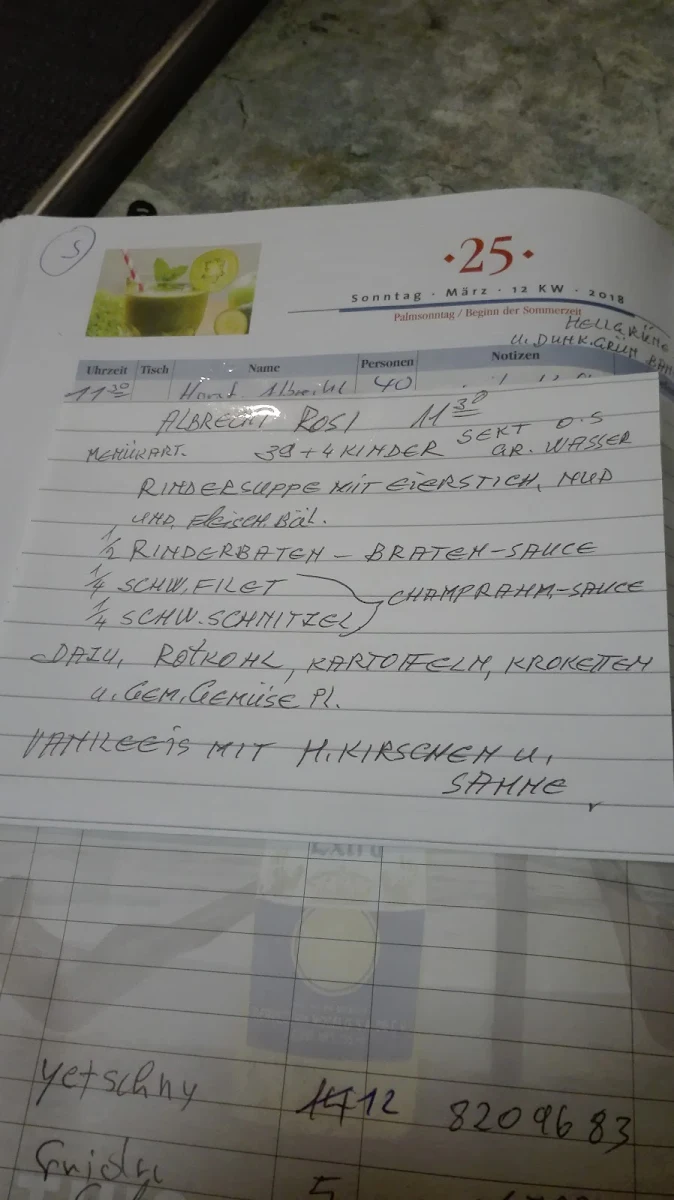 5
25
Sonntag · März · 12 KW · 2018
Palmsonntag / Beginn der Sommerzeit
HELLGRÜNE
U. DUNK.GRÜN
Uhrzeit Tisch Name Personen Notizen
11 30 40
ALBRECHT ROSI 11 30
SEKT O.S
MENÜKART. 39 + 4 KINDER GR. WASSER
RINDERSUPPE MIT EIERSTICH, NUD
UND FLEISCH BÄL.
1/2 RINDERBATEN - BRATEN-SAUCE
1/4 SCHW. FILET CHAMPRAHM-SAUCE
1/4 SCHW. SCHNITZEL
DAZU, ROTKOHL, KARTOFFELN, KROKETTEN
u. GEM. GEMÜSE Pl.
VANILEEIS MIT H.KIRSCHEN U.
SAHNE
Extra
yetschny 12 8209683
5